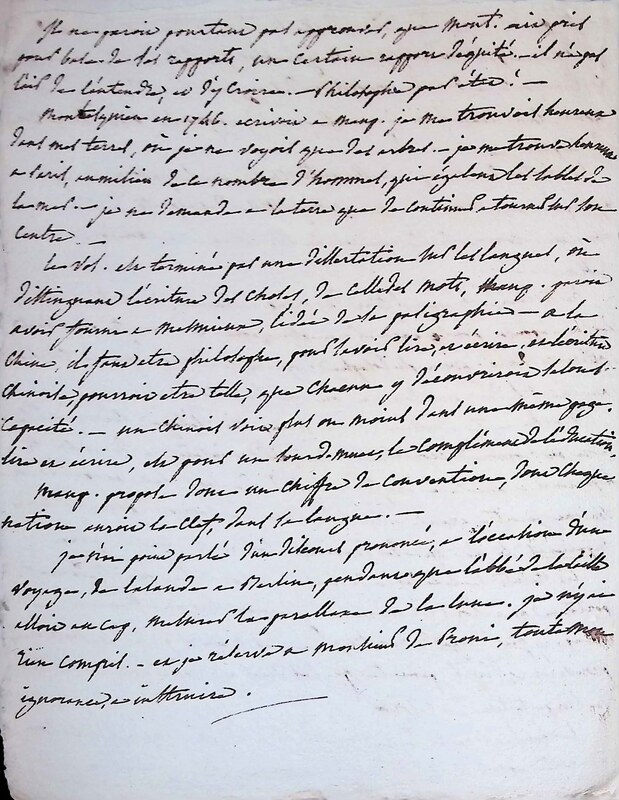 Il ne paroit pourtant pas approuver, que Mont. ait pris
pour base de ses rapports, un certain rapport d'équité. - il n'a pas
l'air de l'entendre, et d'y croire. - Philosophe pas être! -
Montesquieu en 1746. ecrivoit a Maup. je me trouvois heureux
dans mes terres, où je ne voyois que des arbres. - je me trouve heureux
a Paris, au milieu de ce nombre d'hommes, qui égalent les sables de
la mer. - je ne demande a la terre que de continuer a tourner sur son
centre. -
Le vol. est terminé par une dissertation sur les langues, où
distinguant l'écriture des choses, de celle des mots, Maup. paroit
avoir fourni a Mesmieux, l'idée de sa pasigraphie - a la
Chine, il faut etre philosophe, pour savoir lire, et écrire, et l'écriture
Chinoise, pourroit etre telle, que chacun y découvriroit selon sa
capacité. - un Chinois voit plus ou moins dans une même page.
lire et écrire, est pour un sourd-muet, le complément de l'instruction.
Maup. propose donc un chiffre de convention, dont chaque
nation auroit la clef, dans sa langue. -
je n'ai point parlé d'un discours prononcé, a l'occasion d'un
voyage, de Lalande a Berlin, pendant que l'abbé de la Caille
alloit au Cap, mesurer la parallaxe de la lune. je n'y ai
rien compris. - et je réserve a monsieur de Proni, toute mon
ignorance, a instruire.